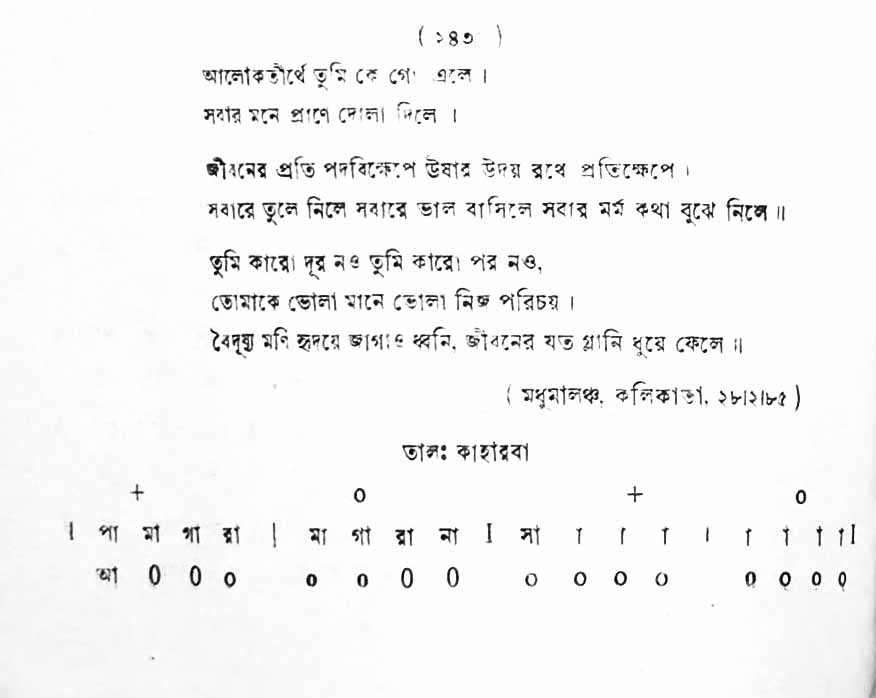 ( ২৪৩ )
আলোকতীর্থে তুমি কে গো এলে ।
সবার মনে প্রাণে দোলা দিলে ।
জীবনের প্রতি পদবিক্ষেপে ঊষার উদয় রথে প্রতিক্ষেপে ।
সবারে তুলে নিলে সবারে ভাল বাসিলে সবার মর্ম কথা বুঝে নিলে ॥
তুমি কারো দূর নও তুমি কারো পর নও,
তোমাকে ভোলা মানে ভোলা নিজ পরিচয় ।
বৈদূষ্য মণি হৃদয়ে জাগাও ধ্বনি, জীবনের যত গ্লানি ধুয়ে ফেলে ॥
( মধুমালঞ্চ, কলিকাতা, ২৮।২।৮৫ )
তালঃ কাহারবা
+ ০ + ০
। পা মা গা রা | মা গা রা না I সা া া া । া া া া I
আ ০ ০ ০ ০ ০ ০ ০ ০ ০ ০ ০ ০ ০ ০ ০